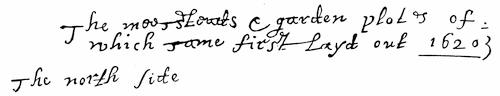 The meersteads & garden plotes of:
which came first layd out 1620
The north side